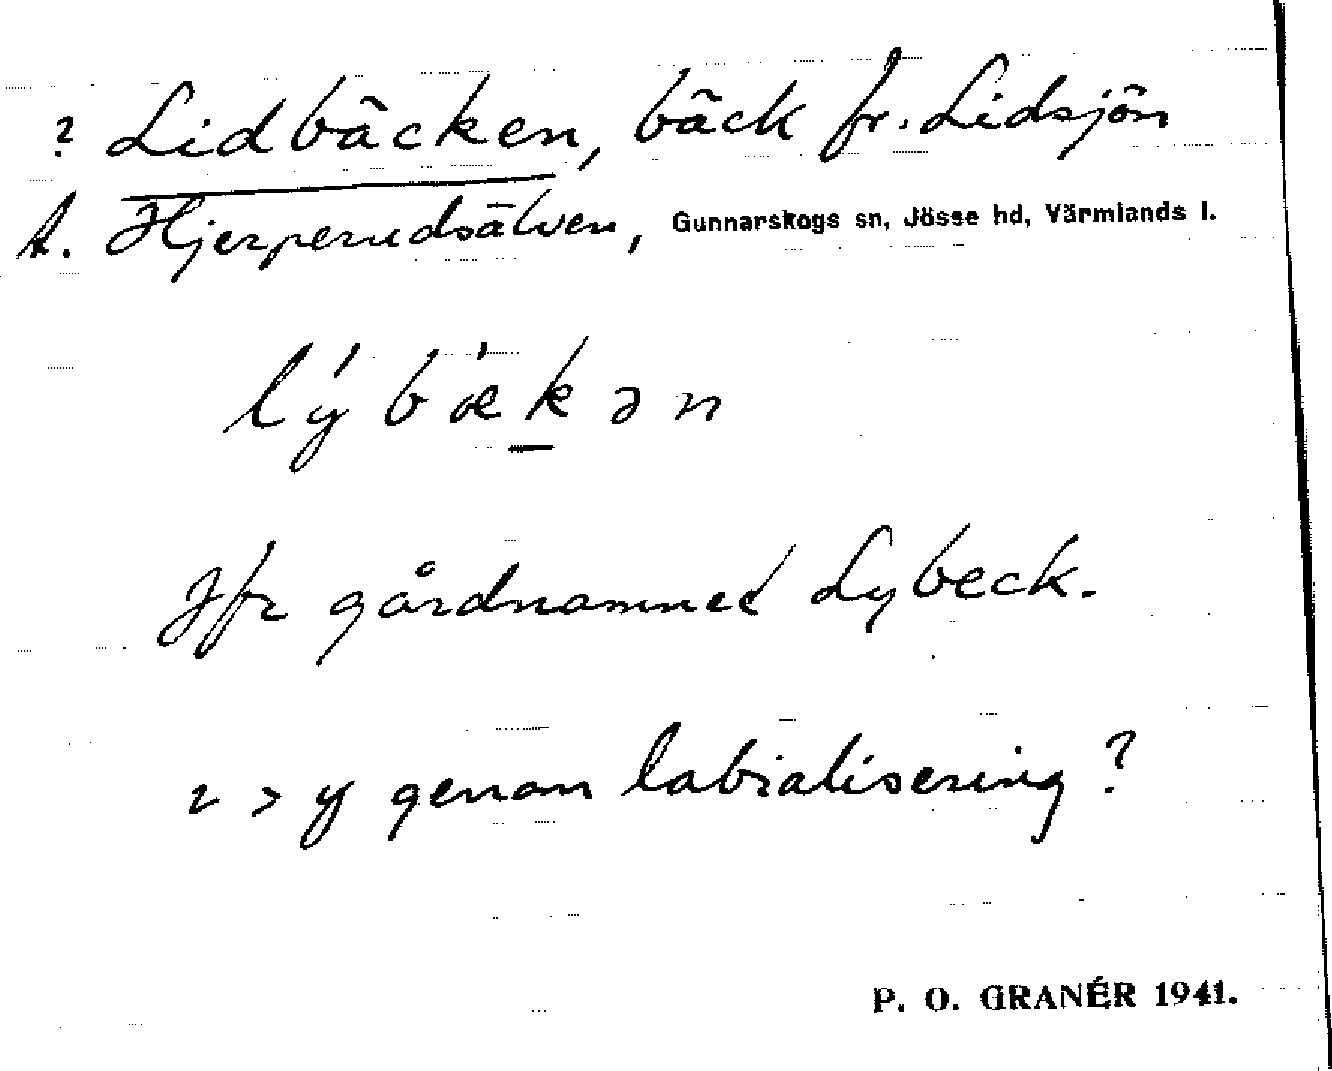 ? Lidbäcken, bäck fr. Lidsjön
t. Hjerperudsälven, Gunnarskogs sn, Jösse hd, Värmlands l.
lýbækən
Jfr gårdnamnet Lybeck.
ı > y genom labialisering?
P. O. GRANÉR 1941.